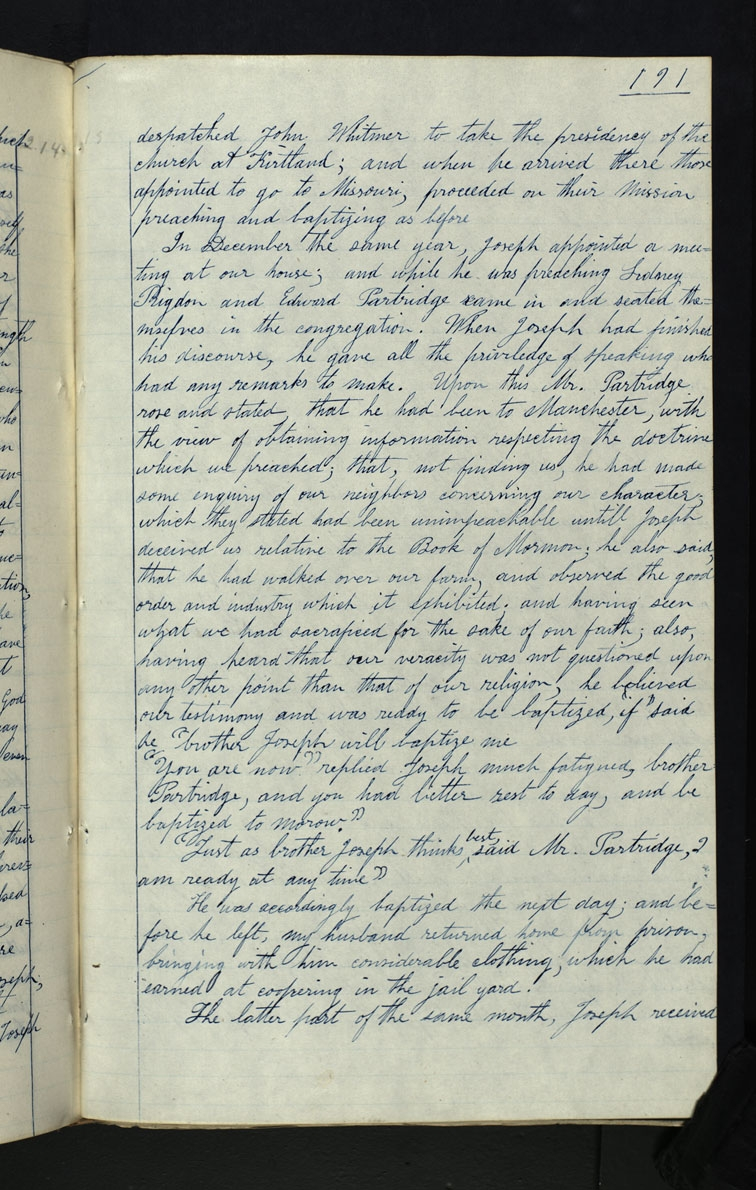 191
despatched John Whitmer to take the presidency of the
church at Kirtland; and when he arrived there those
appointed to go to Missouri, proceeded on their Mission
preaching and baptizing as before
In December the same year, Joseph appointed a mee=
ting at our house; and while he was preaching Sidney
Rigdon and Edward Partridge came in and seated the=
mselves in the congregation. When Joseph had finished
his discourse, he gave all the priviledge of speaking who
had any remarks to make. Upon this Mr. Partridge
rose and stated, that he had been to Manchester, with
the view of obtaining information respecting the doctrine
which we preached; that, not finding us, he had made
some enquiry of our neighbors concerning our character,
which they stated had been unimpeachable untill Joseph
deceived us relative to the Book of Mormon; he also said,
that he had walked over our farm, and observed the good
order and industry which it exhibited; and having seen
what we had sacrapiced for the sake of our faith; also,
having heard that our veracity was not questioned upon
any other point than that of our religion, he believed
our testimony and was reddy to be baptized, "if" said
he "brother Joseph will baptize me
"You are now" replied Joseph much fatigued, brother
Partridge, and you had better rest to day, and be
baptized to morow."
"Just as brother Joseph thinks best, said Mr. Partridge, I
am ready at any time"
He was accordingly baptized the next day; and be=
fore he left, my husband returned home from prison,
bringing with him considerable clothing, which he had
earned at coopering in the jail yard.
The latter part of the same month, Joseph received